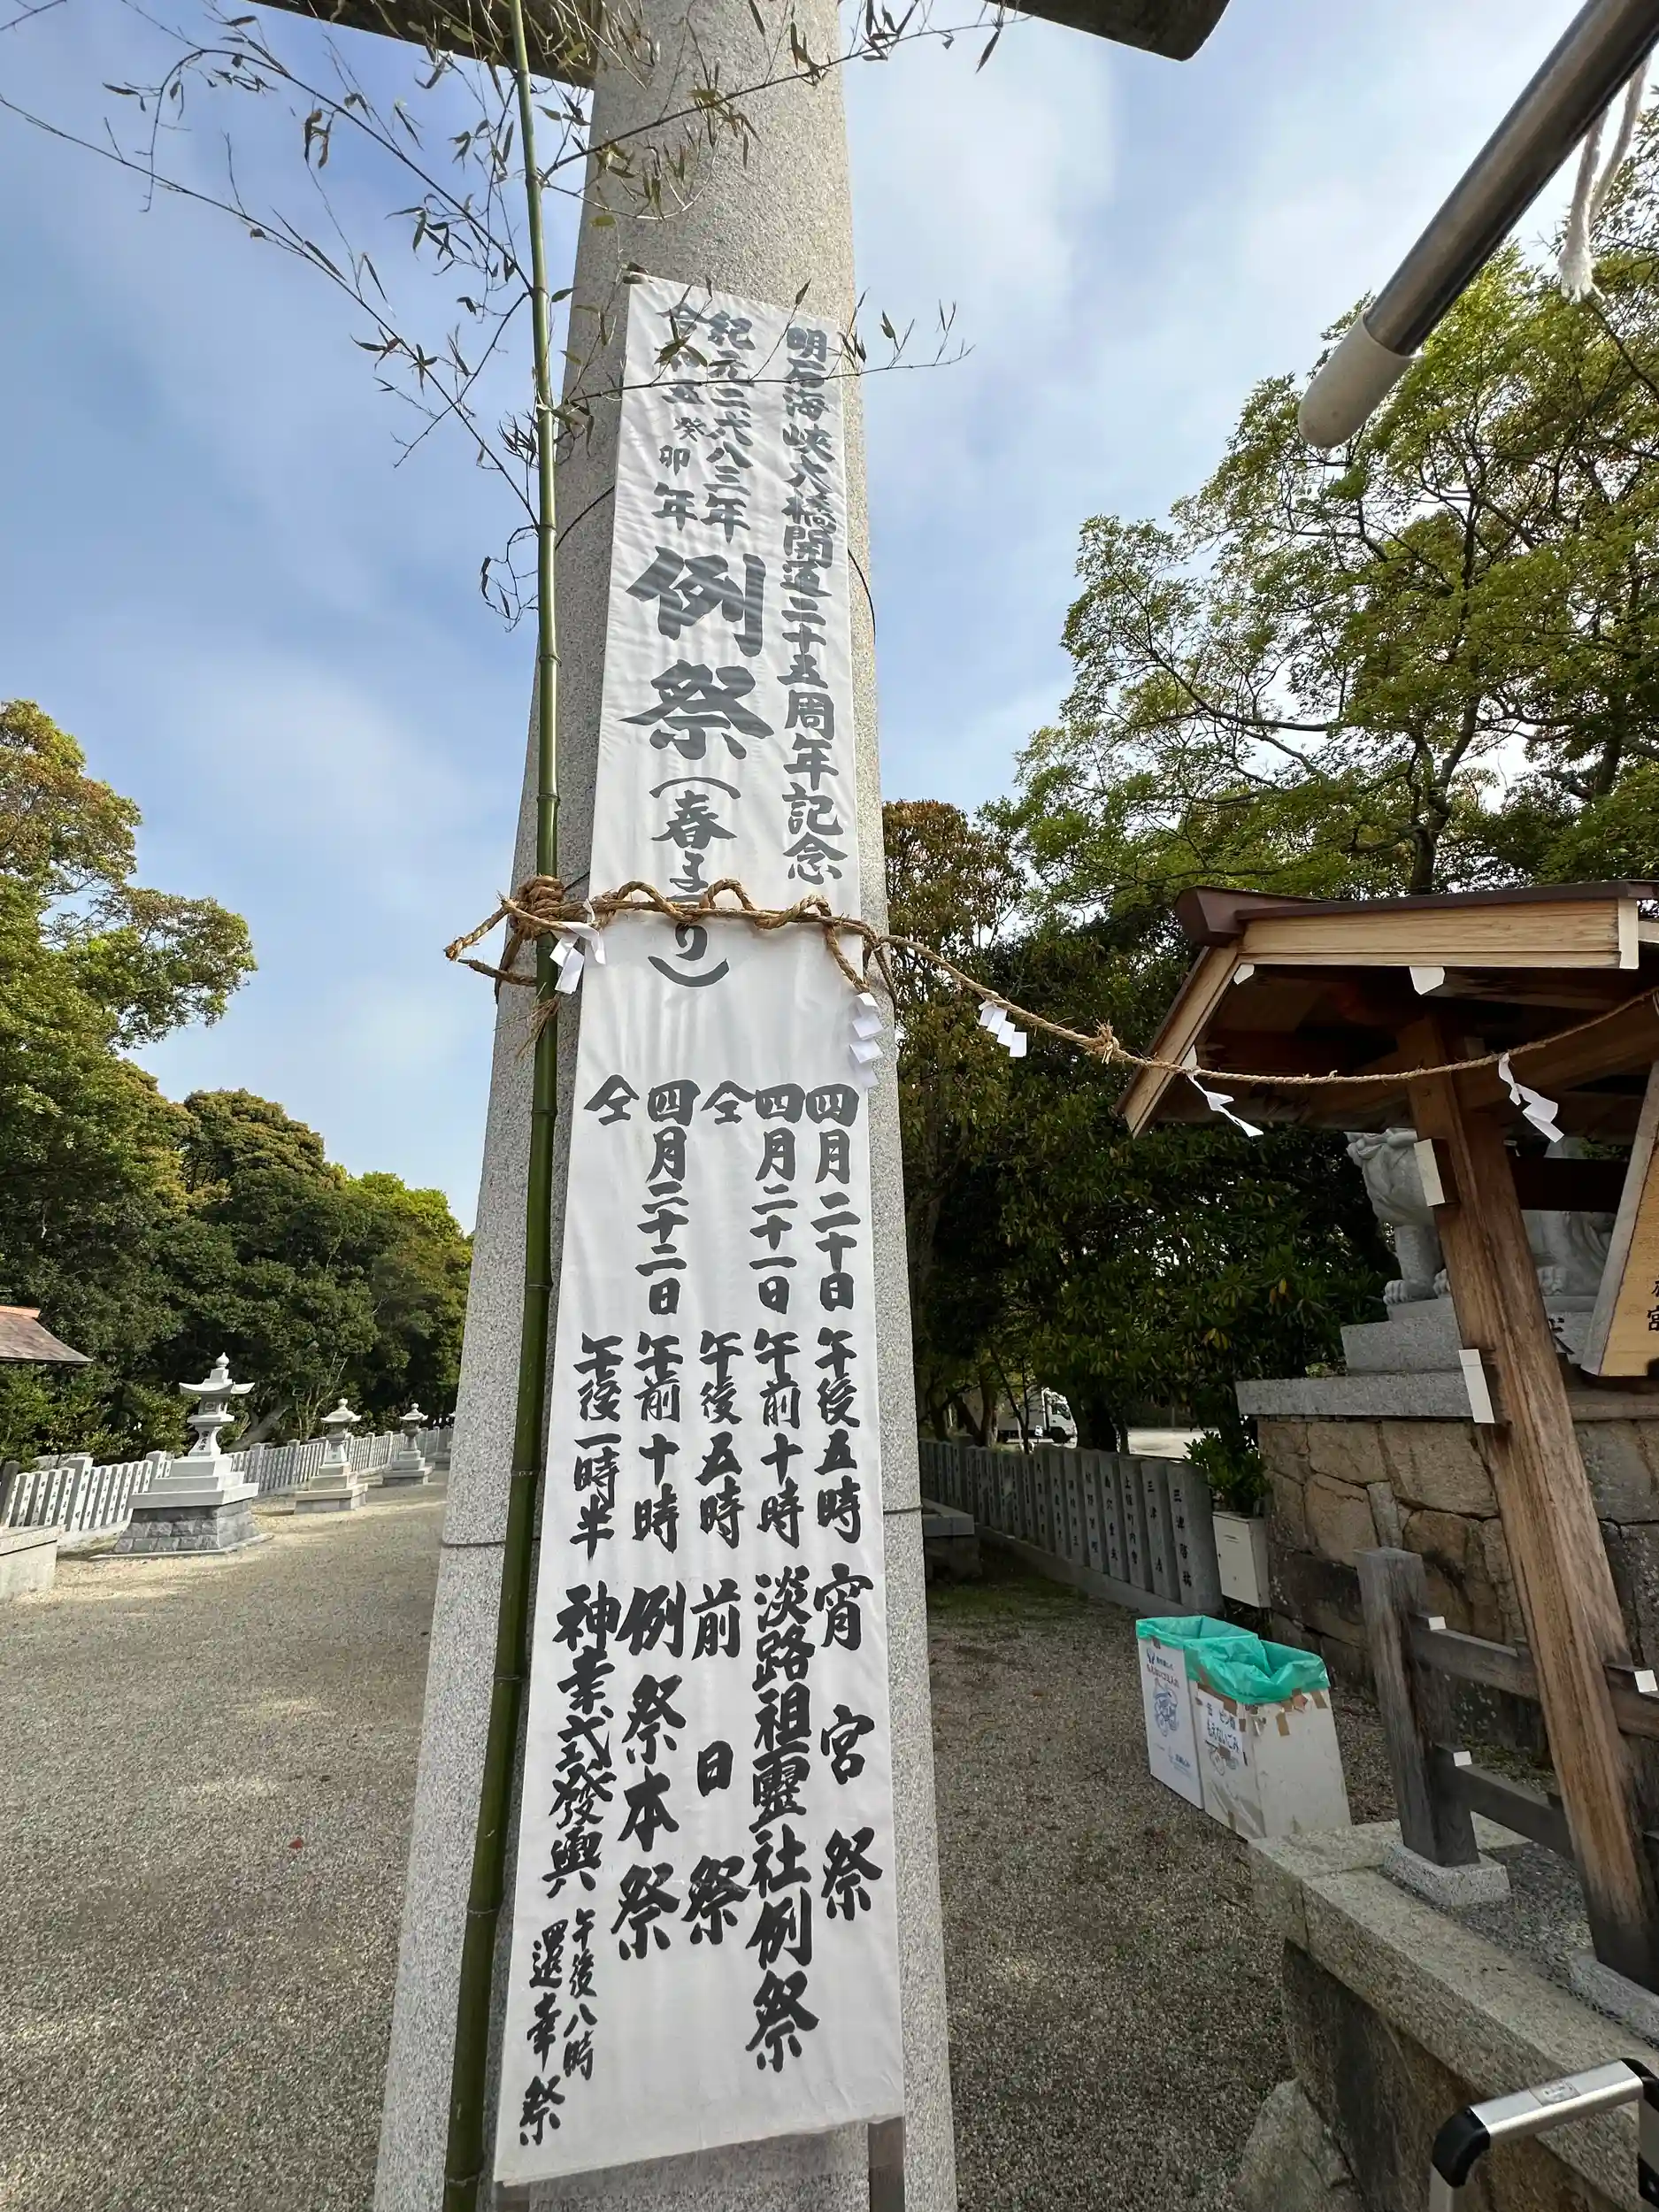 明石海峡大橋開通二十五周年記念
紀元二六八三年
令和五癸卯年
例祭(春まつり)
四月二十日 午後五時 宵宮祭
四月二十一日 午前十時 淡路祖霊社例祭
仝 午後五時 前日祭
四月二十二日 午前十時 例祭本祭
仝 午後一時半 神幸式發輿
午後八時
還幸祭
缶 ビン
もえないごみ